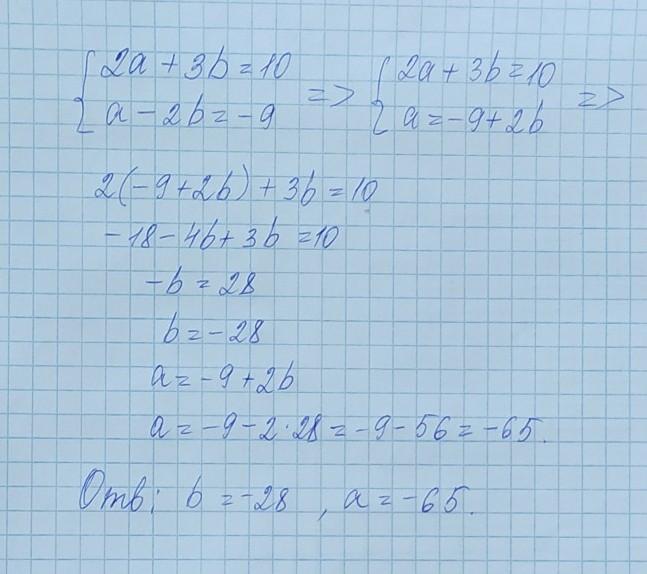 {2a + 3b = 10 => {2a + 3b = 10 =>
{a - 2b = -9 {a = -9 + 2b
2(-9 + 2b) + 3b = 10
-18 - 4b + 3b = 10
-b = 28
b = -28
a = -9 + 2b
a = -9 - 2·28 = -9 - 56 = -65.
Отв: b = -28, a = -65.